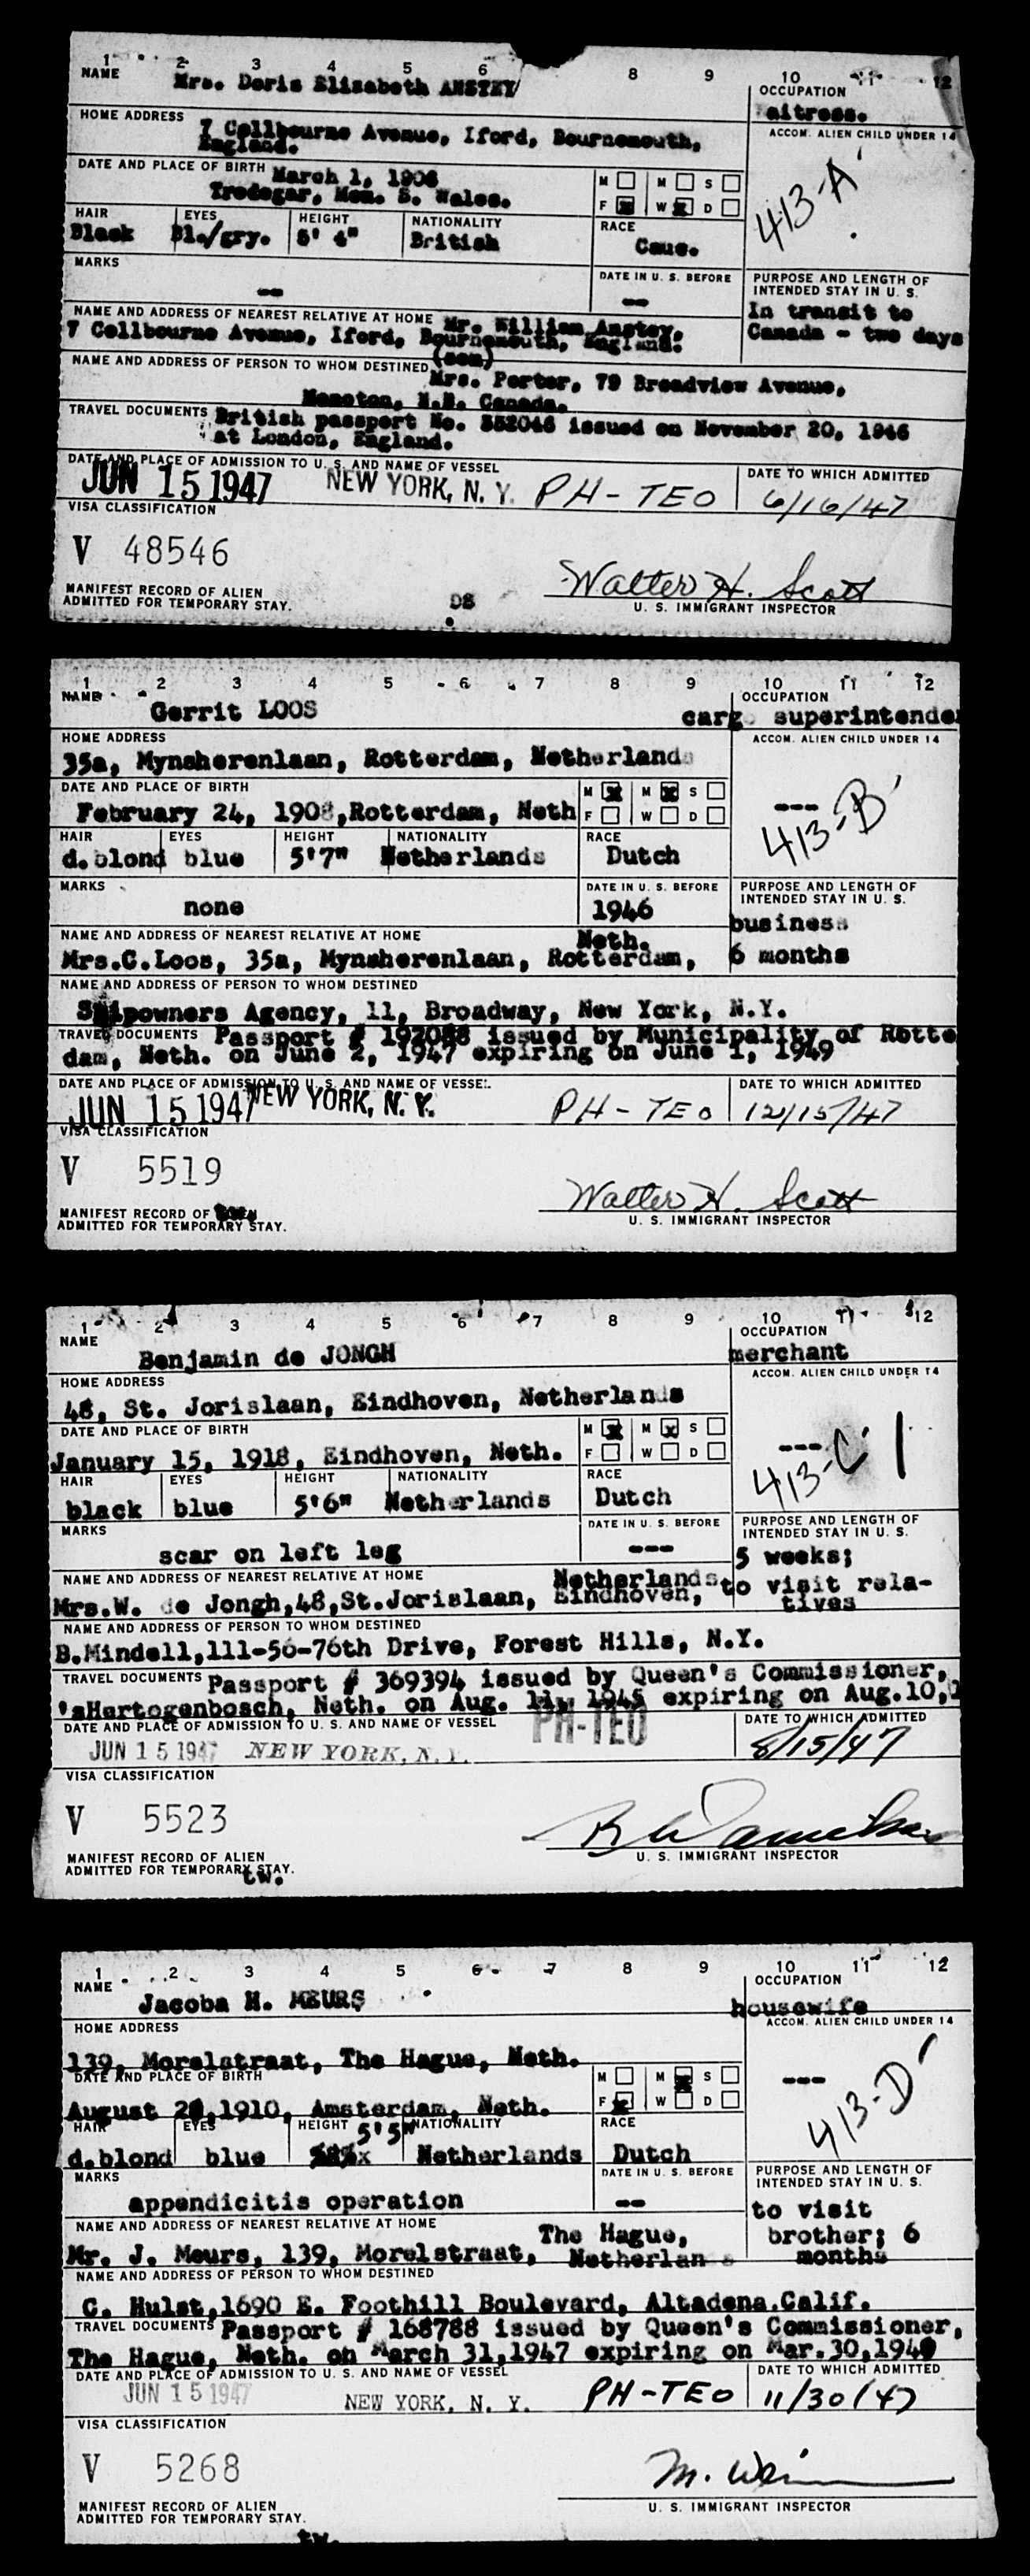 1 2 3 4 5 6 8 9 10 11 12
NAME Mrs. Doris Elizabeth ANSTEY
OCCUPATION
aitress.
HOME ADDRESS 7 Collbourne Avenue, Iford, Bournemouth,
England.
ACCOM. ALIEN CHILD UNDER 14
413-A
DATE AND PLACE OF BIRTH March 1, 1906
Tredegar, Mon. S. Wales.
M M S
F W D
HAIR EYES HEIGHT NATIONALITY RACE
Black Bl./gry. 5' 4" British Cauc.
MARKS
--
DATE IN U. S. BEFORE
--
PURPOSE AND LENGTH OF
INTENDED STAY IN U. S.
In transit to
Canada - two days
NAME AND ADDRESS OF NEAREST RELATIVE AT HOME Mr. William Anstey,
7 Collbourne Avenue, Iford, Bournemouth, England.
(son)
NAME AND ADDRESS OF PERSON TO WHOM DESTINED
Mrs. Porter, 79 Broadview Avenue,
Moncton, N.B. Canada.
TRAVEL DOCUMENTS British passport No. 352046 issued on November 20, 1946
at London, England.
DATE AND PLACE OF ADMISSION TO U. S. AND NAME OF VESSEL
JUN 15 1947 NEW YORK, N. Y. PH-TEO
DATE TO WHICH ADMITTED
6/16/47
VISA CLASSIFICATION
V 48546
Walter H. Scott
MANIFEST RECORD OF ALIEN
ADMITTED FOR TEMPORARY STAY.
U. S. IMMIGRANT INSPECTOR
1 2 3 4 5 6 7 8 9 10 11 12
NAME Gerrit LOOS
OCCUPATION
cargo superintende
HOME ADDRESS
35a, Mynsherenlaan, Rotterdam, Netherlands
ACCOM. ALIEN CHILD UNDER 14
---
413-B
DATE AND PLACE OF BIRTH
February 24, 1908, Rotterdam, Neth
M M S
F W D
HAIR EYES HEIGHT NATIONALITY RACE
d.blond blue 5'7" Netherlands Dutch
MARKS
none
DATE IN U. S. BEFORE
1946
PURPOSE AND LENGTH OF
INTENDED STAY IN U. S.
business
6 months
NAME AND ADDRESS OF NEAREST RELATIVE AT HOME Neth.
Mrs.C.Loos, 35a, Mynsherenlaan, Rotterdam,
NAME AND ADDRESS OF PERSON TO WHOM DESTINED
Shipowners Agency, 11, Broadway, New York, N.Y.
TRAVEL DOCUMENTS Passport # 192088 issued by Municipality of Rotte
dam, Neth. on June 2, 1947 expiring on June 1, 1949
DATE AND PLACE OF ADMISSION TO U. S. AND NAME OF VESSEL
JUN 15 1947 NEW YORK, N. Y. PH-TEO
DATE TO WHICH ADMITTED
12/15/47
VISA CLASSIFICATION
V 5519
Walter H. Scott
MANIFEST RECORD OF
ADMITTED FOR TEMPORARY STAY.
U. S. IMMIGRANT INSPECTOR
1 2 3 4 5 6 7 8 9 10 11 12
NAME Benjamin de JONGH
OCCUPATION
merchant
HOME ADDRESS
48, St. Jorislaan, Eindhoven, Netherlands
ACCOM. ALIEN CHILD UNDER 14
---
413-C
DATE AND PLACE OF BIRTH
January 15, 1918, Eindhoven, Neth.
M M S
F W D
HAIR EYES HEIGHT NATIONALITY RACE
black blue 5'6" Netherlands Dutch
MARKS
scar on left leg
DATE IN U. S. BEFORE
---
PURPOSE AND LENGTH OF
INTENDED STAY IN U. S.
5 weeks;
to visit rela-
tives
NAME AND ADDRESS OF NEAREST RELATIVE AT HOME Netherlands
Mrs.W. de Jongh,48,St.Jorislaan, Eindhoven,
NAME AND ADDRESS OF PERSON TO WHOM DESTINED
B.Mindell,111-56-76th Drive, Forest Hills, N.Y.
TRAVEL DOCUMENTS Passport # 369394 issued by Queen's Commissioner,
'sHertogenbosch, Neth. on Aug. 11, 1945 expiring on Aug.10,1
DATE AND PLACE OF ADMISSION TO U. S. AND NAME OF VESSEL
JUN 15 1947 NEW YORK, N. Y. PH-TEO
DATE TO WHICH ADMITTED
8/15/47
VISA CLASSIFICATION
V 5523
MANIFEST RECORD OF ALIEN
ADMITTED FOR TEMPORARY STAY.
tw.
U. S. IMMIGRANT INSPECTOR
1 2 3 4 5 6 7 8 9 10 11 12
NAME Jacoba H. MEURS
OCCUPATION
housewife
HOME ADDRESS
139, Morelstraat, The Hague, Neth.
ACCOM. ALIEN CHILD UNDER 14
---
413-D
DATE AND PLACE OF BIRTH
August 2,1910, Amsterdam, Neth.
M M S
F W D
HAIR EYES HEIGHT 5'5" NATIONALITY RACE
d.blond blue Netherlands Dutch
MARKS
appendicitis operation
DATE IN U. S. BEFORE
--
PURPOSE AND LENGTH OF
INTENDED STAY IN U. S.
to visit
brother; 6
months
NAME AND ADDRESS OF NEAREST RELATIVE AT HOME The Hague,
Mr. J. Meurs, 139, Morelstraat, Netherlan s
NAME AND ADDRESS OF PERSON TO WHOM DESTINED
C. Hulst,1690 E. Foothill Boulevard, Altadena.Calif.
TRAVEL DOCUMENTS Passport # 168788 issued by Queen's Commissioner,
The Hague, Neth. on March 31,1947 expiring on Mar.30,1949
DATE AND PLACE OF ADMISSION TO U. S. AND NAME OF VESSEL
JUN 15 1947 NEW YORK, N. Y. PH-TEO
DATE TO WHICH ADMITTED
11/30/47
VISA CLASSIFICATION
V 5268
MANIFEST RECORD OF ALIEN
ADMITTED FOR TEMPORARY STAY.
tw.
U. S. IMMIGRANT INSPECTOR